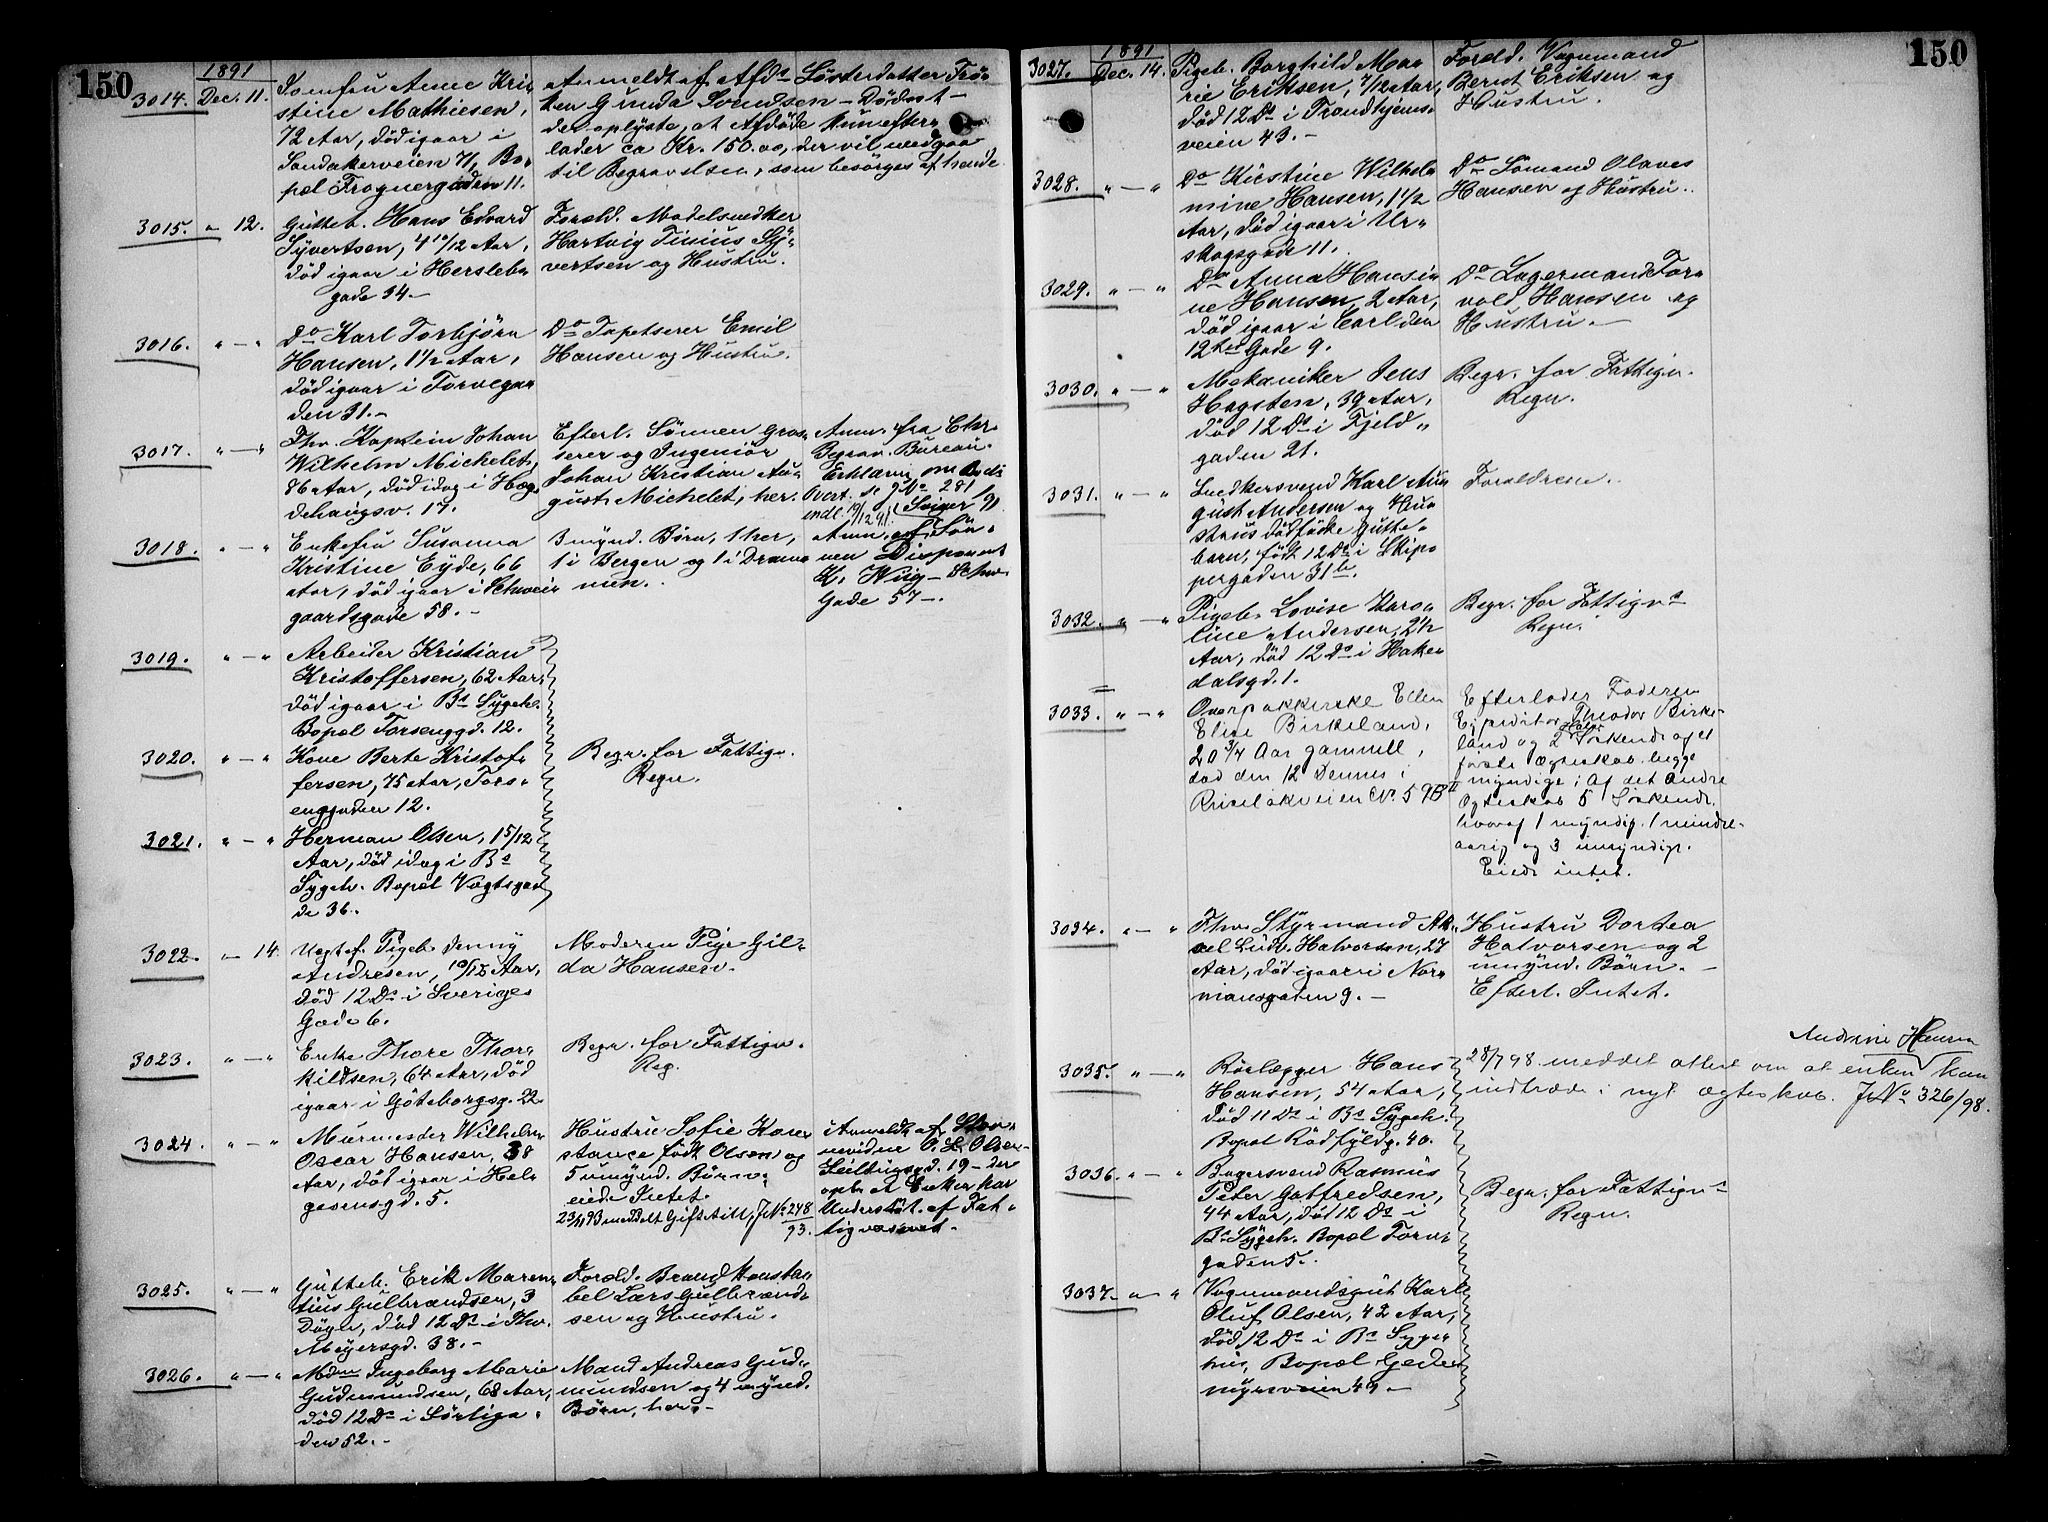 150
1891
3014. Dec. 11. Jomfru Anne Kri-
stine Mathiesen,
72 Aar, död igaar i
Sandakerveien 71, Bo-
pæl Frognergaden 11.
Anmeldt af Afds Sösterdatter Frö-
ken Gunda Svendsen – Dödsat –
der oplyste, at Afdöde kun efter-
lader ca Kr. 150.00, der vil medgaa
til Begravelsen, som besörges af hende
3015. " 12. Gutteb. Hans Edvard
Syvertsen, 4 10/12 Aar,
död igaar i Herslebs
gade 34.–
Foræld. Modelsnedker
Hartvig Tinius Sy-
vertsen og Hustru.
3016. " – " Do Karl Torbjörn
Hansen, 1 1/2 Aar,
död igaar i Torvega-
den 31.–
Do Tapetserer Emil
Hansen og Hustru.
3017. " – " Fhv. Kaptein Johan
Wilhelm Michelet,
86 Aar, död idag i Hæg-
dehaugsv. 17.
Efterl. Sönnen Gros-
serer og Ingeniör
Johan Kristian Au-
gust Michelet, her.
Anm. fra Chr.
Begrav. Bureau.
Erklæring om
281
3018. " – " Enkefru Susanna
Kristine Eyde, 66
Aar, död igaar i Schwei-
gaardsgade 58.–
3 mynd. Börn, 1 her,
1 i Bergen og 1 i Dram-
men.
Anm. af Sön-
nen Disponent
K. Wiig – Schw.
Gade 57–.
3019. " – " Arbeider Kristian
Kristoffersen, 62 Aar,
död igaar i Bs Sygeh.
Bopæl Torsenggd. 12.
3020. " – " Kone Berte Kristof-
fersen, 75 Aar, Tors-
enggaden 12.
Begr. for Fattigv.
Regn.
3021. " – " Herman Olsen, 1 5/12
Aar, död idag i Bs
Sygeh. Bopæl Vogtsga-
de 36.
3022. " 14. Uægtef. Pigeb. Jenny
Andresen, 10/12 Aar,
död 12 Ds i Sveriges
Gade 6.
Moderen Pige Gil-
da Hansen.
3023. " – " Enke Thore Thor-
kildsen, 64 Aar, död
igaar i Göteborgsg. 22
Begr. for Fattigv.
Reg.
3024. " – " Murmester Wilhelm
Oscar Hansen, 38
Aar, död igaar i Hel-
gesensgd. 5.
Hustru Sofie Kon-
stance födt Olsen og
5 umynd. Börn;
eiede Intet.
23/11 93 meddelt Giftetill, J No 248/93.
Anmeldt af
O. L. Olsen
19 – der
opl. at Enken har
Understöt. af Fat-
tigvæsenet.
3025. " – " Gutteb. Erik Maren-
tius Gulbrandsen, 3
Dögn, död 12 Ds i Thv.
Meyersgd. 38.–
Foræld. Brand Konsta-
bel Lars Gulbrand-
sen og Hustru.
3026. " – " Mdm Ingeborg Marie
Gudmundsen, 68 Aar,
död 12 Ds i Sörliga-
den 52.–
Mand Andreas Gud-
mundsen og 4 mynd.
Börn, her.–
150
1891
3027. Dec. 14. Pigeb. Borghild Ma-
rie Eriksen, 7/12 Aar,
död 12 Ds i Trondhjems-
veien 43.–
Foræld. Vognmand
Bernt Eriksen og
Hustru.
3028. " – " Do Kirstine Wilhel-
mine Hansen, 1 1/2
Aar, död igaar i Ur-
skogsgade 11.
Do Sömand Olaves
Hansen og Hustru.
3029. " – " Do Anna Hansi-
ne Hansen, 2 Aar,
död igaar i Carl den
12tes Gade 9.
Do Lagermand Tor-
vald Hansen og
Hustru.–
3030. " – " Mekaniker Jens
Hagsten, 39 Aar,
död 12 Ds i Fjeld-
gaden 21.
Begr. for Fattigv.
Regn.
3031. " – " Snedkersvend Karl Au-
gust Andersen og Hu-
strus dödfödte Gutte-
barn, födt 12 Ds i Skip-
pergaden 31 b.
Forældrene.
3032. " – " Pigeb. Lovise Karo-
line Andersen, 2 1/2
Aar, död 12 Ds i Haken-
dalsgd. 1.
Begr. for Fattigvs
Regn.
3033. " – " Ompakkerske Ellen
Elise Birkeland,
20 3/4 Aar gammel,
död den 12 Dennes i
No 59 B II
Efterlader Faderen
Expeditör Theodor Birke-
land og 2 Söskende af et
förste Ægteskab, begge
myndige; Af det andre
Ægteskab 5 Söskende,
hvoraf 1 myndig, 1 mindre-
aarig og 3 umyndige.
Eiede intet.
3034. " – " Fhv. Styrmand Ak-
sel Ludv. Halvorsen, 27
Aar, död igaar i Nor-
mansgaten 9.–
Hustru Dortea
Halvorsen og 2
umynd. Börn.–
Efterl. Intet.
3035. " – " Rörlægger Hans
Hansen, 54 Aar,
död 11 Ds i Bs Sygeh.
Bopæl Rödfyldg. 40.
Andrine Hansen
28/7 98 meddelt attest om at enken kan
indtræde i nyt ægteskab. J No 326/98.
3036. " – " Bagersvend Rasmus
Peter Gotfredsen,
44 Aar, död 12 Ds i
Bs Sygeh. Bopæl Torv-
gaden 5.
Begr. for Fattigvs
Regn.
3037. " – " Vognmandsgut Karl
Oluf Olsen, 42 Aar,
död 12 Ds i Bs Syge-
hus, Bopæl Gede-
myrsveien 49.–